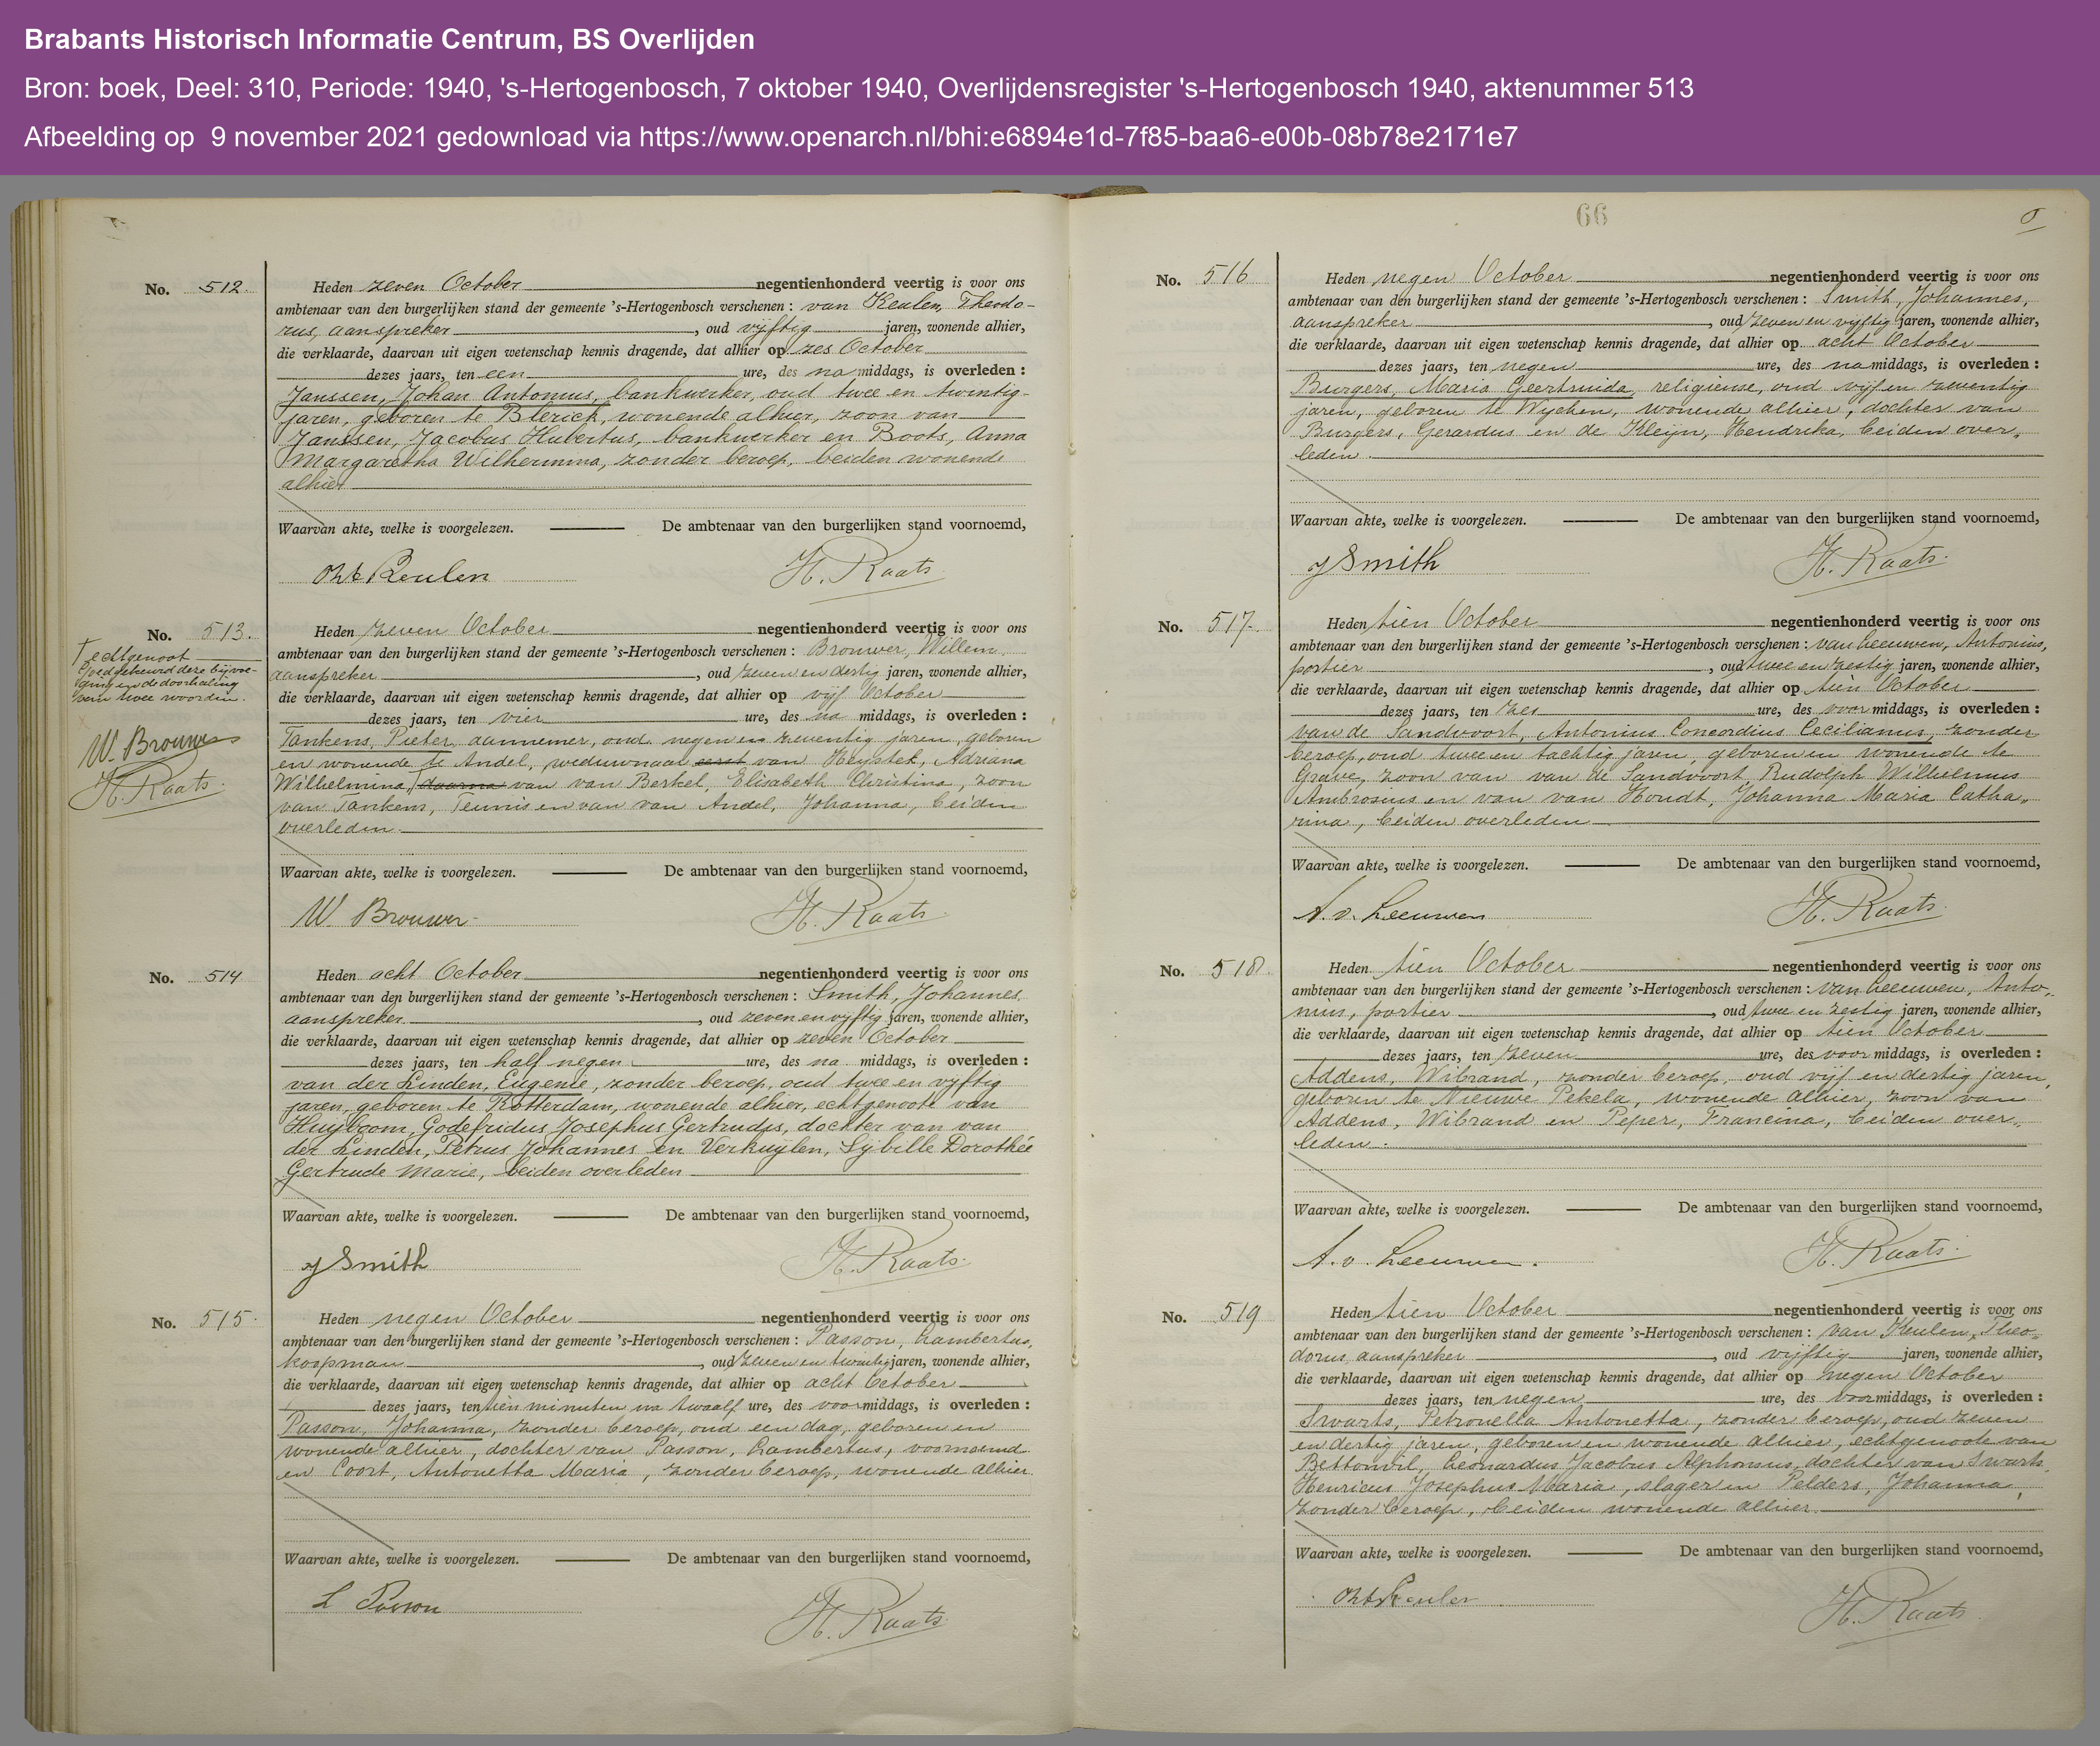 Brabants Historisch Informatie Centrum, BS Overlijden
Bron: boek, Deel: 310, Periode: 1940, 's-Hertogenbosch, 7 oktober 1940, Overlijdensregister 's-Hertogenbosch 1940, aktenummer 513
Afbeelding op  9 november 2021 gedownload via https://www.openarch.nl/bhi:e6894e1d-7f85-baa6-e00b-08b78e2171e7
No. 512.
Heden zeven October negentienhonderd veertig is voor ons
ambtenaar van den burgerlijken stand der gemeente 's-Hertogenbosch verschenen: van Keulen, Theodo-
rus, aanspreker, oud vijftig jaren, wonende alhier,
die verklaarde, daarvan uit eigen wetenschap kennis dragende, dat alhier op zes October
dezes jaars, ten een ure, des namiddags, is overleden:
Janssen, Johan Antonius, bankwerker, oud twee en twintig
jaren, geboren te Blerick, wonende alhier, zoon van
Janssen, Jacobus Hubertus, bankwerker en Boots, Anna
Margaretha Wilhelmina, zonder beroep, beiden wonende
alhier
Waarvan akte, welke is voorgelezen. De ambtenaar van den burgerlijken stand voornoemd,
Keulen H. Raats
No. 513.
Heden zeven October negentienhonderd veertig is voor ons
ambtenaar van den burgerlijken stand der gemeente 's-Hertogenbosch verschenen: Brouwer, Willem
aanspreker, oud zeven en dertig jaren, wonende alhier,
die verklaarde, daarvan uit eigen wetenschap kennis dragende, dat alhier op vijf October
dezes jaars, ten vier ure, des na middags, is overleden:
Tankens, Pieter, aannemer, oud negen en zeventig jaren, geboren
en wonende te Andel, weduwnaar eerst van Heystek, Adriana
Wilhelmina, daarna van van Berkel, Elisabeth Christina, zoon
van Tankens, Teunis en van van Andel, Johanna, beiden
overleden.
Waarvan akte, welke is voorgelezen. De ambtenaar van den burgerlijken stand voornoemd,
W. Brouwer H. Raats
echtgenoot
Goedgekeurd deze bijvoe-
ging en de doorhaling
van twee woorden.
W. Brouwer
H. Raats
No. 514
Heden acht October negentienhonderd veertig is voor ons
ambtenaar van den burgerlijken stand der gemeente 's-Hertogenbosch verschenen: Smith, Johannes
aanspreker, oud zeven en vijftig jaren, wonende alhier,
die verklaarde, daarvan uit eigen wetenschap kennis dragende, dat alhier op zeven October
dezes jaars, ten half negen ure, des na middags, is overleden:
van der Linden, Eugenie, zonder beroep, oud twee en vijftig
jaren, geboren te Rotterdam, wonende alhier, echtgenoote van
Huijboom, Godefridus Josephus Gertrudis, dochter van van
der Linden, Petrus Johannes en Verkuijlen, Sybille Dorothée
Gertrude Marie, beiden overleden
Waarvan akte, welke is voorgelezen. De ambtenaar van den burgerlijken stand voornoemd,
J Smith H. Raats
No. 515.
Heden negen October negentienhonderd veertig is voor ons
ambtenaar van den burgerlijken stand der gemeente 's-Hertogenbosch verschenen: Passon, Lambertus,
koopman, oud zeven en twintig jaren, wonende alhier,
die verklaarde, daarvan uit eigen wetenschap kennis dragende, dat alhier op acht October
dezes jaars, ten tien minuten na twaalf ure, des voormiddags, is overleden:
Passon, Johanna, zonder beroep, oud een dag, geboren en
wonende alhier, dochter van Passon, Lambertus, voornoemd
en Coort, Antonetta Maria, zonder beroep, wonende alhier.
Waarvan akte, welke is voorgelezen. De ambtenaar van den burgerlijken stand voornoemd,
L Passon H. Raats
66
No. 516
Heden negen October negentienhonderd veertig is voor ons
ambtenaar van den burgerlijken stand der gemeente 's-Hertogenbosch verschenen: Smith, Johannes,
aanspreker, oud zeven en vijftig jaren, wonende alhier,
die verklaarde, daarvan uit eigen wetenschap kennis dragende, dat alhier op acht October
dezes jaars, ten negen ure, des namiddags, is overleden:
Burgers, Maria Geertruida, religieuse, oud vijf en zeventig
jaren, geboren te Wychen, wonende alhier, dochter van
Burgers, Gerardus en de Kleijn, Hendrika, beiden over-
leden.
Waarvan akte, welke is voorgelezen. De ambtenaar van den burgerlijken stand voornoemd,
J Smith H. Raats.
No. 517.
Heden tien October negentienhonderd veertig is voor ons
ambtenaar van den burgerlijken stand der gemeente 's-Hertogenbosch verschenen: van Leeuwen, Antonius,
portier, oud twee en zestig jaren, wonende alhier,
die verklaarde, daarvan uit eigen wetenschap kennis dragende, dat alhier op tien October
dezes jaars, ten zes ure, des voormiddags, is overleden:
van de Sandvoort, Antonius Concordius Cecilianus, zonder
beroep, oud twee en tachtig jaren, geboren en wonende te
Grave, zoon van van de Sandvoort, Rudolph Wilhelmus
Ambrosius en van van Houdt, Johanna Maria Catha-
rina, beiden overleden
Waarvan akte, welke is voorgelezen. De ambtenaar van den burgerlijken stand voornoemd,
A. v. Leeuwen H. Raats.
No. 518.
Heden tien October negentienhonderd veertig is voor ons
ambtenaar van den burgerlijken stand der gemeente 's-Hertogenbosch verschenen: van Leeuwen, Anto-
nius, portier, oud twee en zestig jaren, wonende alhier,
die verklaarde, daarvan uit eigen wetenschap kennis dragende, dat alhier op tien October
dezes jaars, ten zeven ure, des voormiddags, is overleden:
Addens, Wibrand, zonder beroep, oud vijf en dertig jaren,
geboren te Nieuwe Pekela, wonende alhier, zoon van
Addens, Wibrand en Peper, Francina, beiden over-
leden.
Waarvan akte, welke is voorgelezen. De ambtenaar van den burgerlijken stand voornoemd,
A. v. Leeuwen. H. Raats.
No. 519
Heden tien October negentienhonderd veertig is voor ons
ambtenaar van den burgerlijken stand der gemeente 's-Hertogenbosch verschenen: van Keulen, Theo-
dorus, aanspreker, oud vijftig jaren, wonende alhier,
die verklaarde, daarvan uit eigen wetenschap kennis dragende, dat alhier op negen October
dezes jaars, ten negen ure, des voormiddags, is overleden:
Swarts, Petronella Antonetta, zonder beroep, oud zeven
en dertig jaren, geboren en wonende alhier, echtgenoote van
Bettonvil, Leonardus Jacobus Alphonsus, dochter van Swarts,
Henricus Josephus Maria, slager en Pelders, Johanna,
zonder beroep, beiden wonende alhier.
Waarvan akte, welke is voorgelezen. De ambtenaar van den burgerlijken stand voornoemd,
Keulen H. Raats